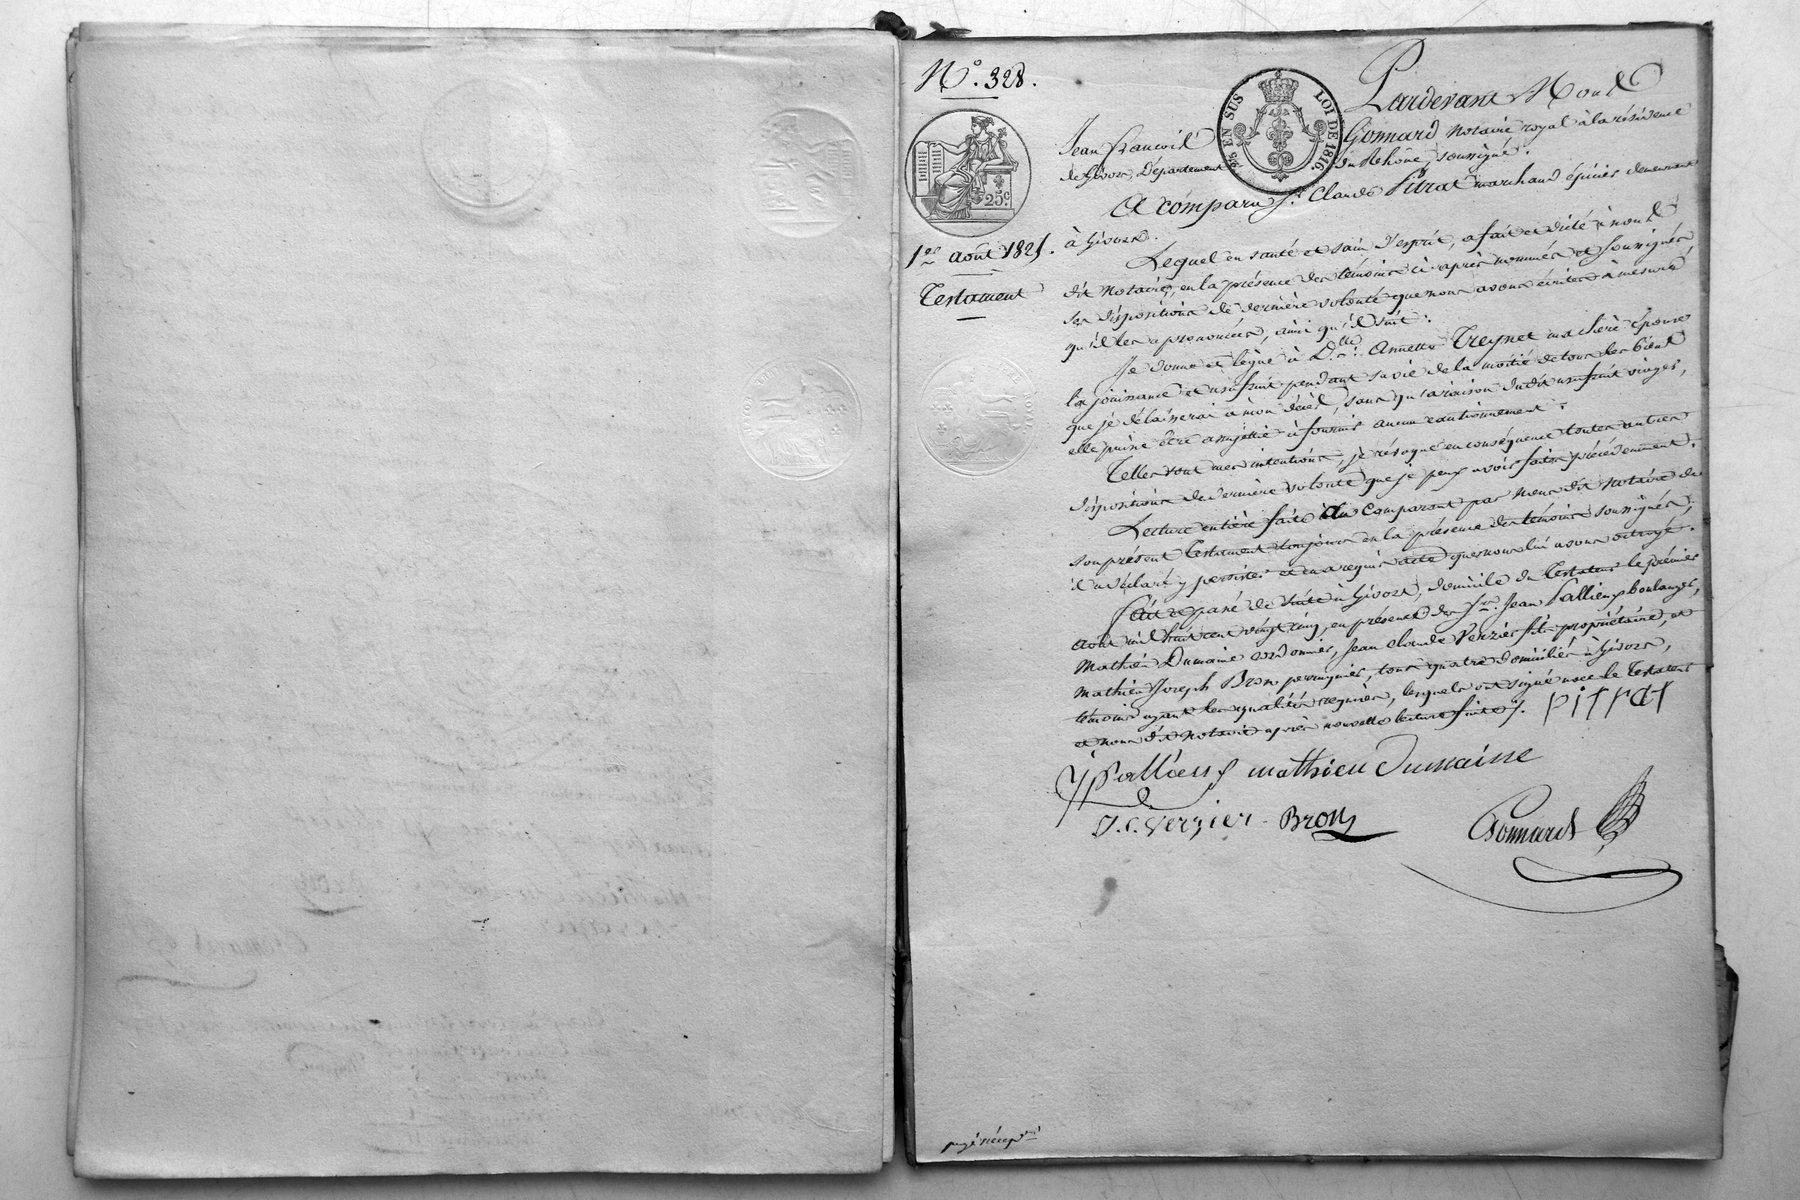 N.° 328.
25 EN SUS LOI DE 1816.
25c
1er août 1825.
Testament
Pardevant Nous
Jean François Gonnard Notaire royal à la résidence
de Givors, Département du Rhône, soussigné.
A comparu Sr. Claude Pitrat marchand épicier demeurant
à Givors.
Lequel en santé et sain d'esprit, a fait et dicté à nous
dit Notaire, en la présence des témoins ci-après nommés et soussignés,
ses dispositions de dernière volonté que nous avons écrites à mesure
qu'il les a prononcées, ainsi qu'il suit:
Je donne et lègue à D.elle Annette Treynet ma chère épouse
la jouissance et usufruit pendant sa vie de la moitié de tous les biens
que je délaisserai à mon décès, sans qu'à raison dudit usufruit viager,
elle puisse être assujettie à fournir aucun cautionnement.
Telles sont mes intentions, je révoque en conséquence toutes autres
dispositions de dernière volonté que je peux avoir faites précédemment.
Lecture entière faite au comparant par nous dit notaire de
son présent testament toujours en la présence des témoins soussignés,
il a déclaré y persister et en a requis acte que nous lui avons octroyé.
Fait et passé de suite à Givors, domicile du testateur le premier
août mil huit cent vingt cinq, en présence des Srs. Jean Pallieux boulanger,
Mathieu Dumaine cordonnier, Jean Claude Verzier fils propriétaire, et
Mathieu Joseph Bron perruquier, tous quatre domiciliés à Givors,
témoins ayant les qualités requises, lesquels ont signé avec le testateur
et nous dit notaire après nouvelle lecture faite.
pitrat
J Pallieux mathieu Dumaine
J. C. Verzier Bron
Gonnard